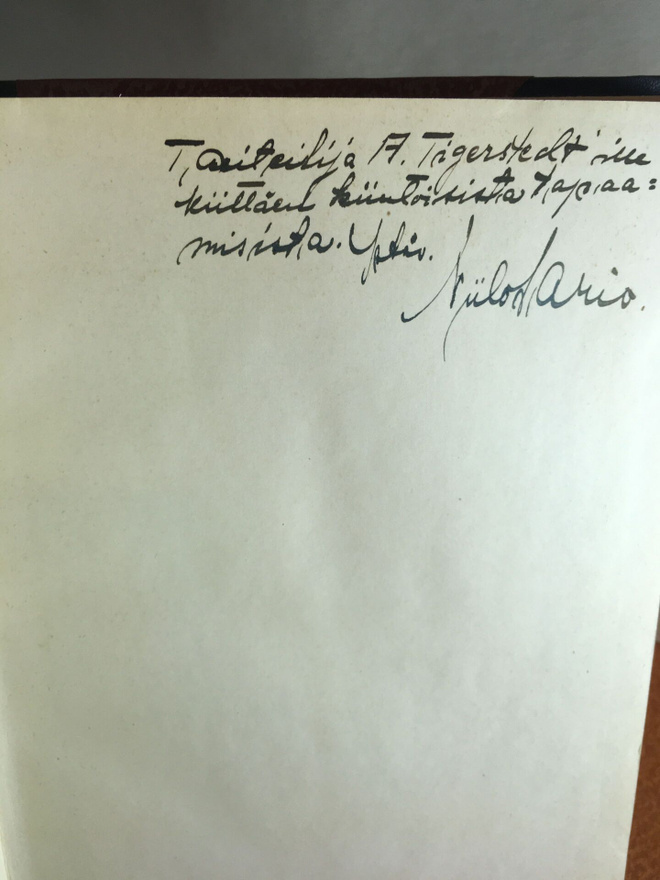 Taiteilija A. Tigerstedt'ille
kiittäen kiintoisista tapaa=
misista. Ystäv.
Niilo Vario.